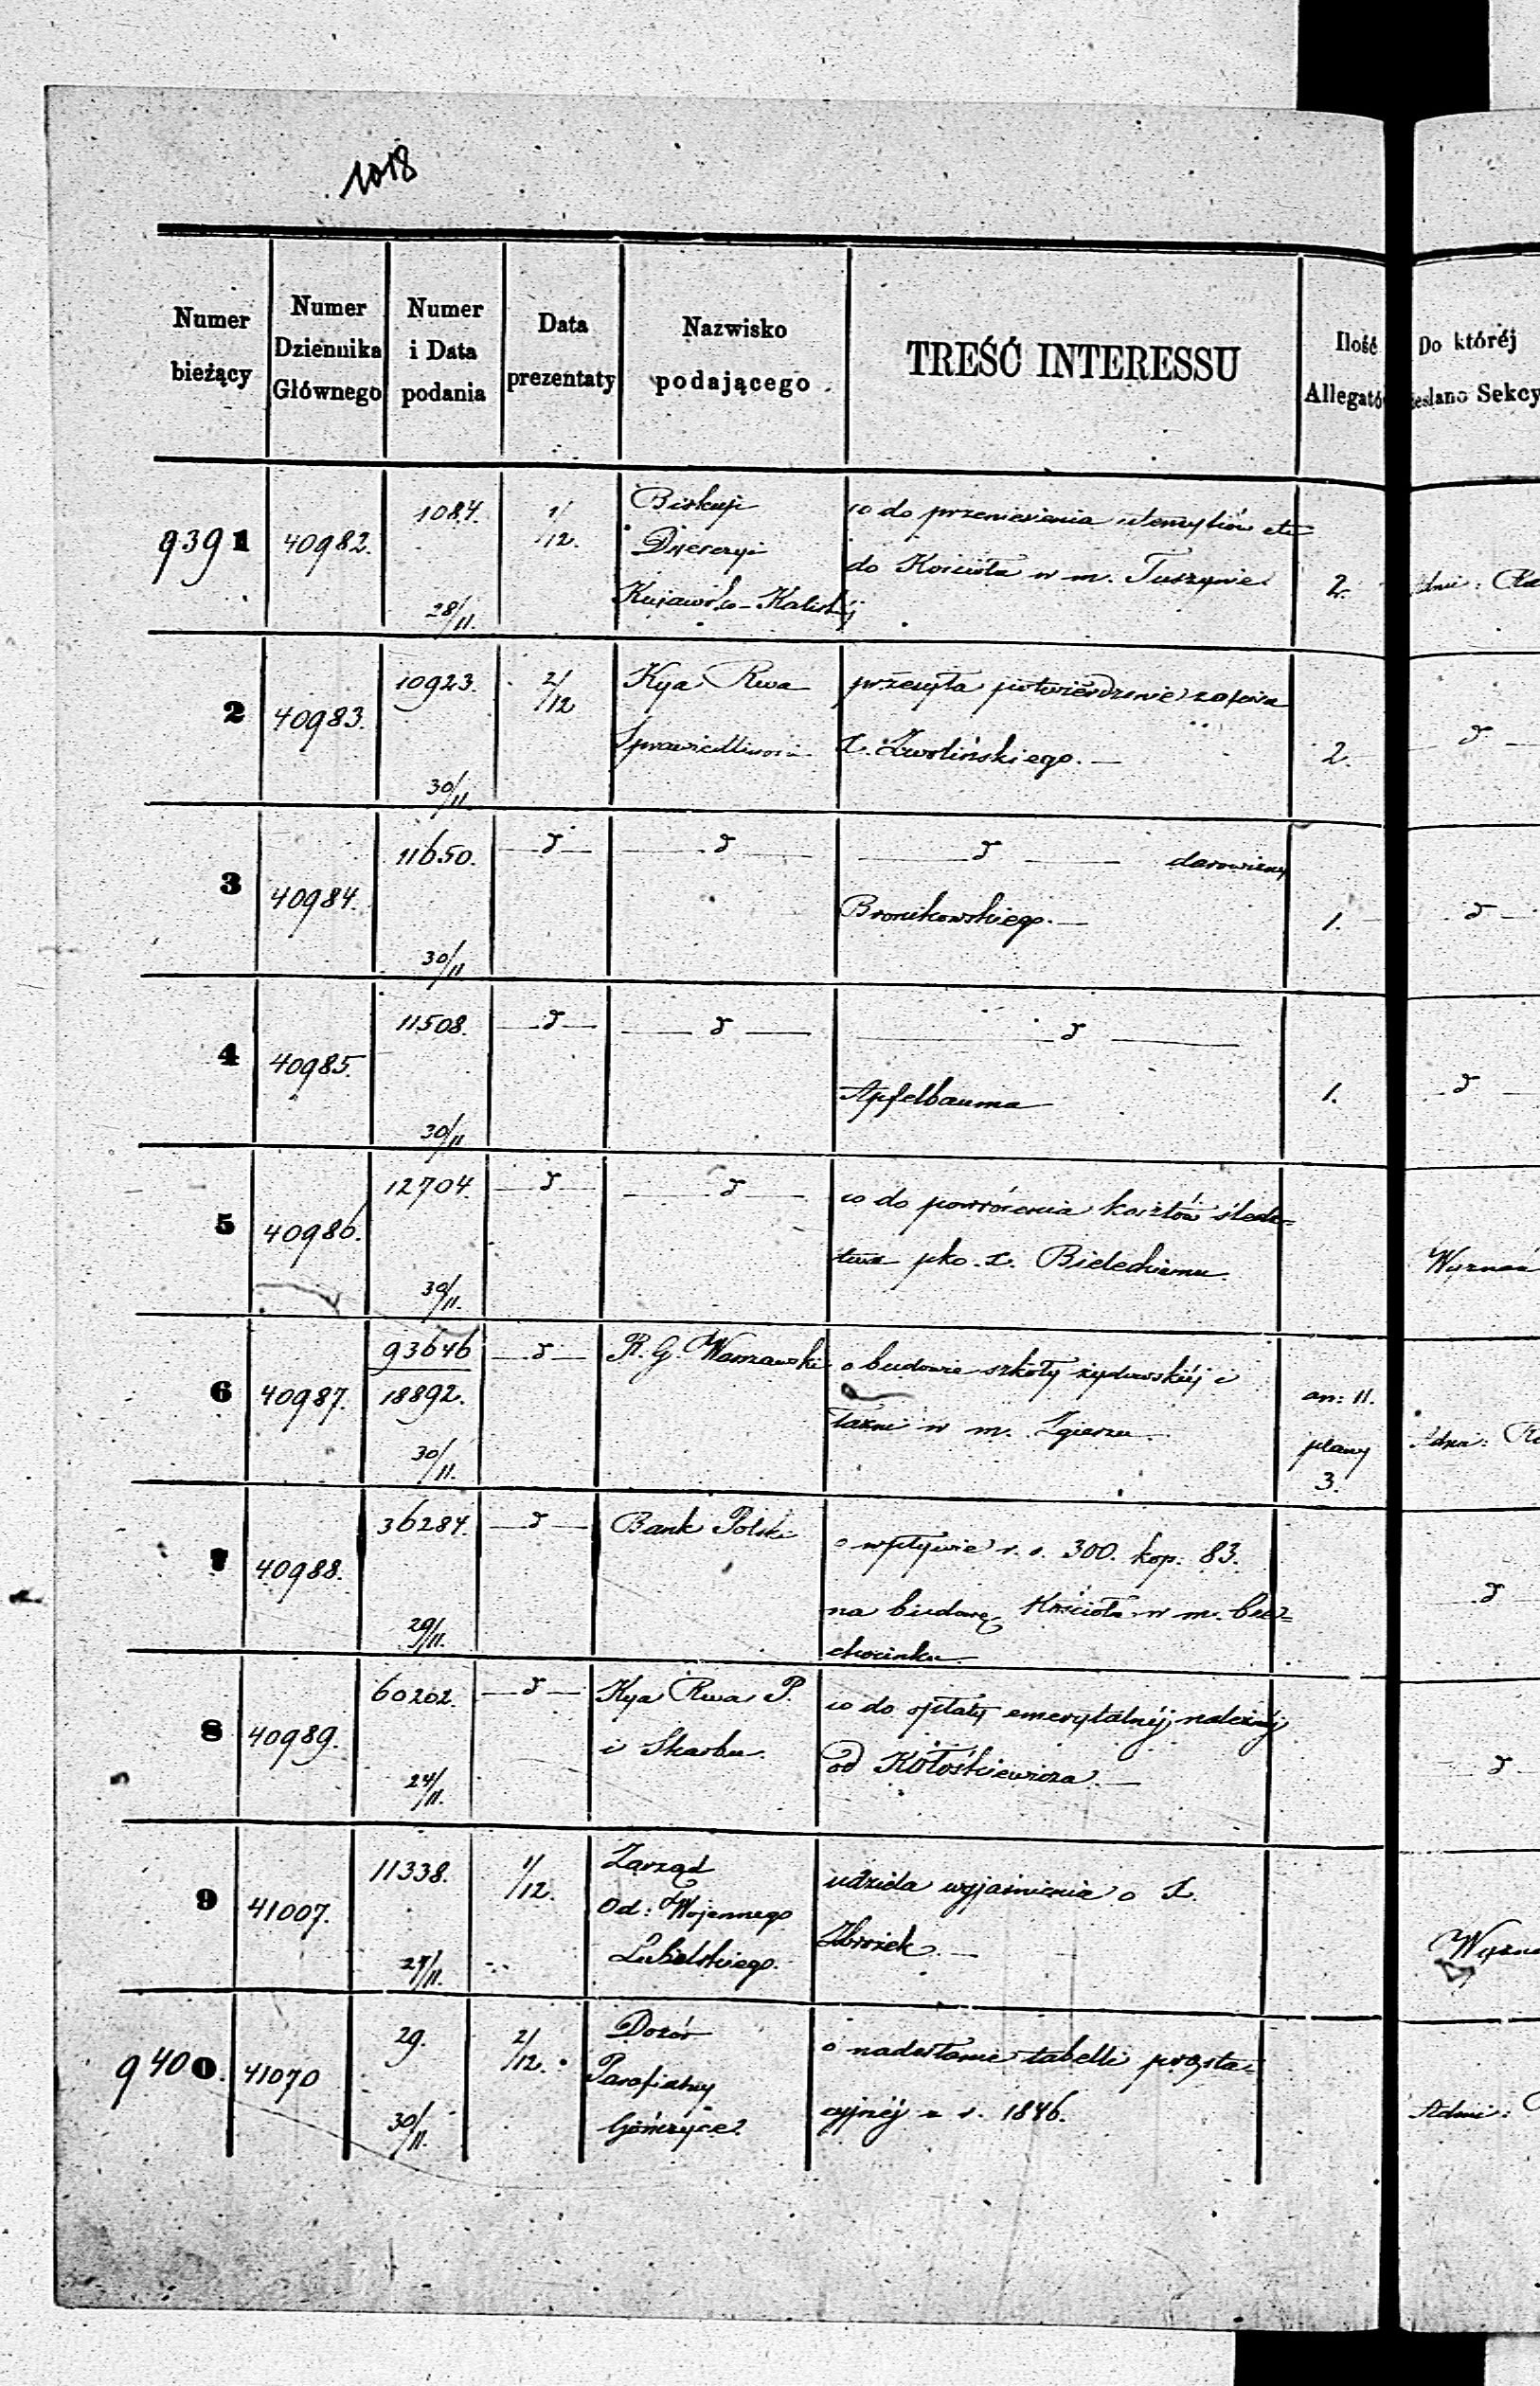 1018
Numer bieżący
Numer Dziennika Głównego
Numer i Data podania
Data prezentaty
Nazwisko podającego
TREŚĆ INTERESSU
Ilość
Allegató
Do któréj
esłano Sekcy
9391 40982. 1084. 28/11. 1/12. Biskup
Dyecezyi
Kujawsko-Kaliskiéj
co do przeniesienia
do Kościoła w m. Tuszynie.
2.
2 40983. 10923. 30/11. 2/12 Kya Rwa
Sprawiedliwości
przesyła potwierdzenie zapisu
X. Zwolińskiego. —
2.
d
3 40984. 11650. 30/11 — d — — d — — d — darowizny
Bronikowskiego. —
1.
d
4 40985. 11508. 30/11 — d — — d — — d —
Apfelbauma
1.
d
5 40986. 12704. 30/11. — d — — d — co do powrócenia kosztów śledz=
twa pko. X. Bieleckiemu.
6 40987. 93646
18892. 30/11. — d — R. G. Warszawski o budowie szkoły żydowskiéj i
łaźni w m. Zgierzu.
an: 11.
plany
3.
7 40988. 36284. 29/11. — d — Bank Polski o wpływie r. s. 300. kop. 83.
na budowę Kościoła w m. Cie=
chocinku.
d
8 40989. 60202. 24/11. — d — Kya Rwa P.
i Skarbu.
co do opłaty emerytalnéj należnéj
od Kołośkiewicza. —
d
9 41007. 11338. 27/11. 1/12. Zarząd
Od: Wojennego
Lubelskiego.
udziela wyjaśnienia o X.
Zbrożek. —
9400. 41070 29. 30/11. 2/12. Dozór
Parafialny
Gończyce.
o nadesłanie tabelli prezta=
cyjnéj z r. 1846.
Admi: